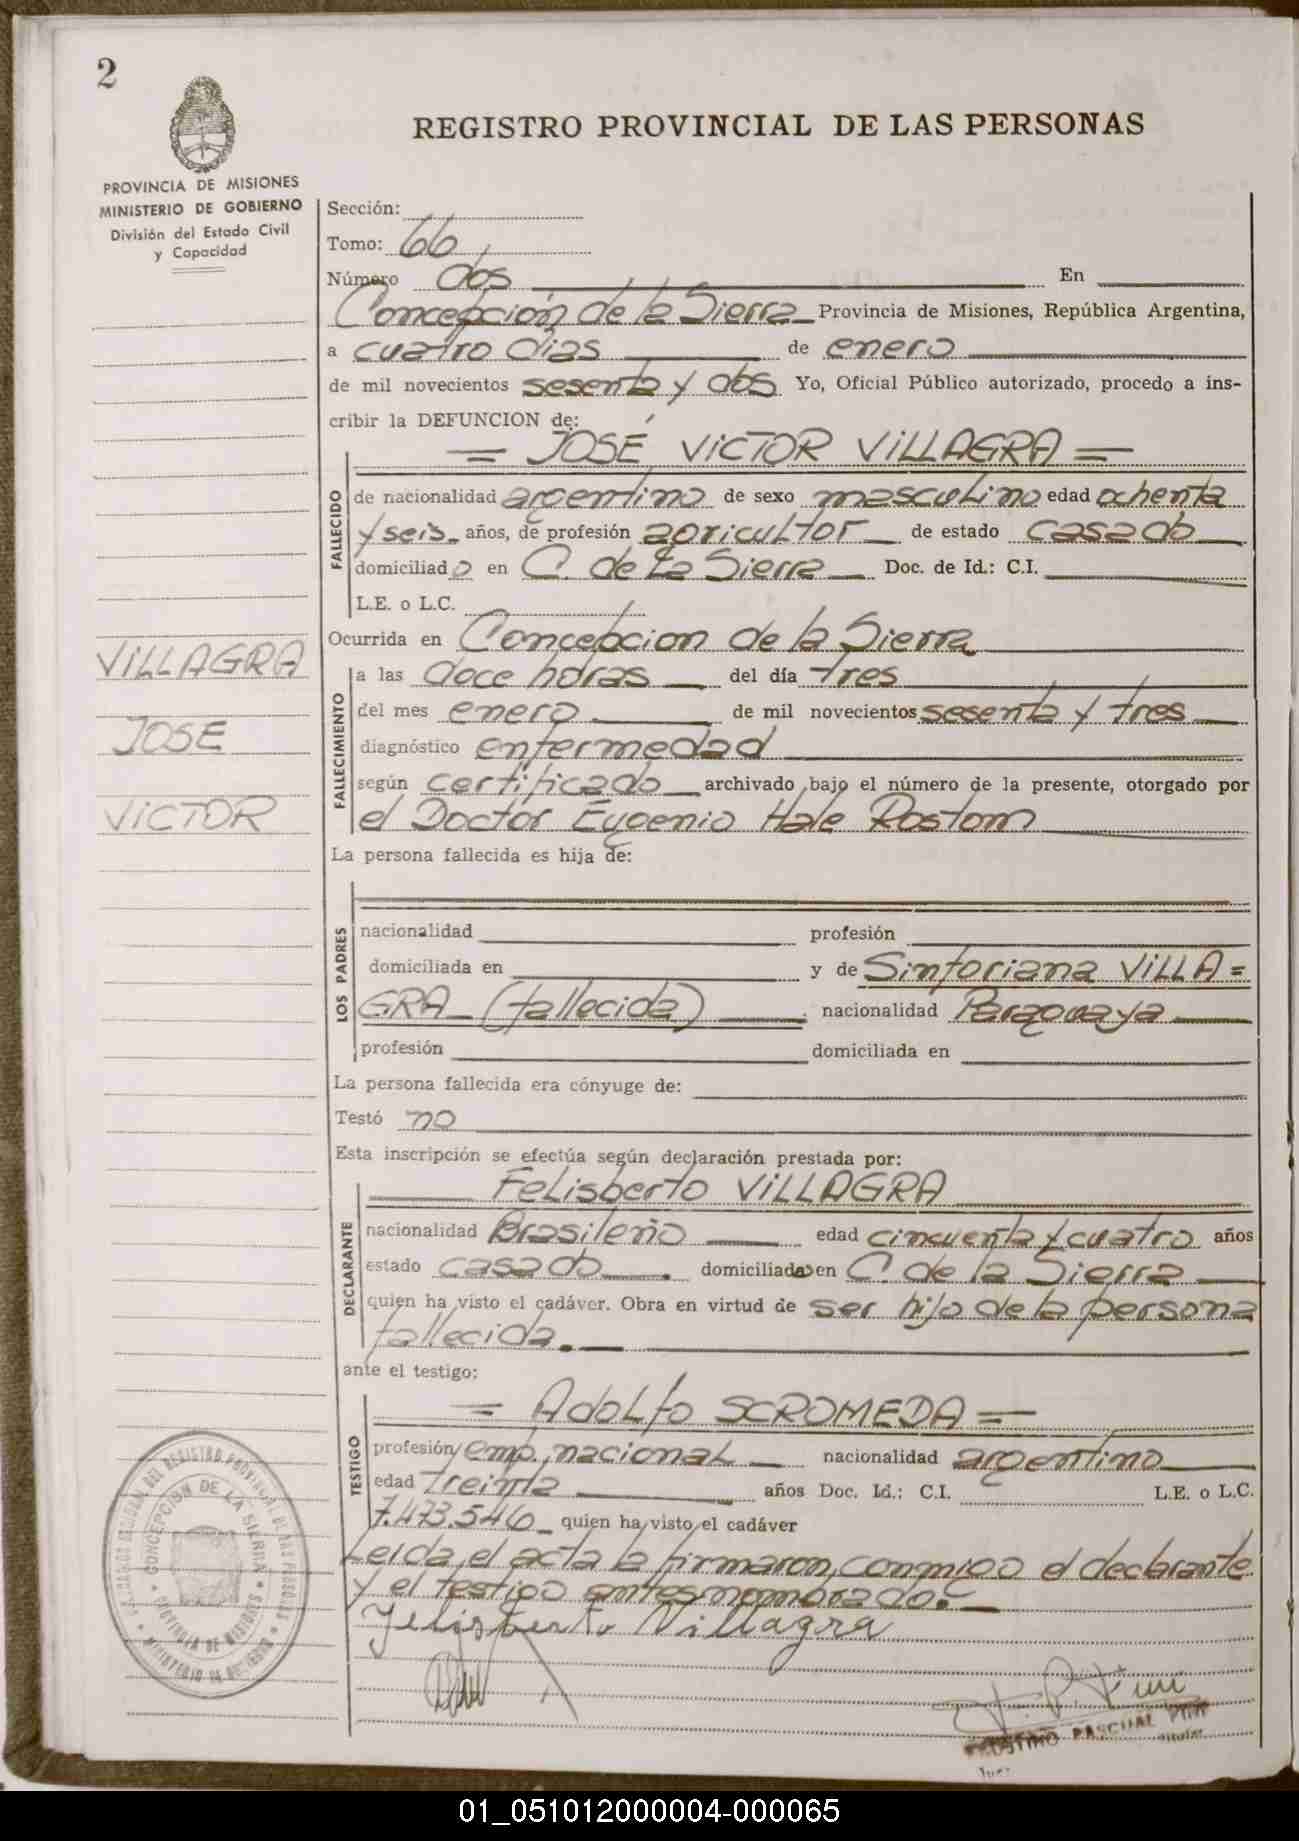 2
REGISTRO PROVINCIAL DE LAS PERSONAS
PROVINCIA DE MISIONES
MINISTERIO DE GOBIERNO
División del Estado Civil
y Capacidad
Sección:
Tomo: 66
Número dos En
Concepción de la Sierra Provincia de Misiones, República Argentina,
a cuatro días de enero
de mil novecientos sesenta y dos Yo, Oficial Público autorizado, procedo a ins-
cribir la DEFUNCION de:
= JOSÉ VICTOR VILLAGRA =
FALLECIDO
de nacionalidad argentino de sexo masculino edad ochenta
y seis años, de profesión agricultor de estado casado
domiciliado en C. de la Sierra Doc. de Id.: C.I.
L.E. o L.C.
Ocurrida en Concepcion de la Sierra
VILLAGRA
JOSE
VICTOR
FALLECIMIENTO
a las doce horas del día tres
del mes enero de mil novecientos sesenta y tres
diagnóstico enfermedad
según certificado archivado bajo el número de la presente, otorgado por
el Doctor Eugenio Hale Rostom
La persona fallecida es hija de:
LOS PADRES
nacionalidad profesión
domiciliada en y de Sinforiana VILLA=
GRA (fallecida) nacionalidad Paraguaya
profesión domiciliada en
La persona fallecida era cónyuge de:
Testó no
Esta inscripción se efectúa según declaración prestada por:
Felisberto VILLAGRA
DECLARANTE
nacionalidad Brasileño edad cincuenta y cuatro años
estado casado domiciliado en C. de la Sierra
quien ha visto el cadáver. Obra en virtud de ser hijo de la persona
fallecida.
ante el testigo:
= Adolfo SCROMEDA =
TESTIGO
profesión emp. nacional nacionalidad argentino
edad treinta años Doc. Id.: C.I. L.E. o L.C.
7.473.546 quien ha visto el cadáver
Leída el acta la firmaron conmigo el declarante
y el testigo antesnombrado.
Felisberto Villagra
CONCEPCION DE LA SIERRA
PROVINCIA DE MISIONES
PASCUAL
01_051012000004-000065